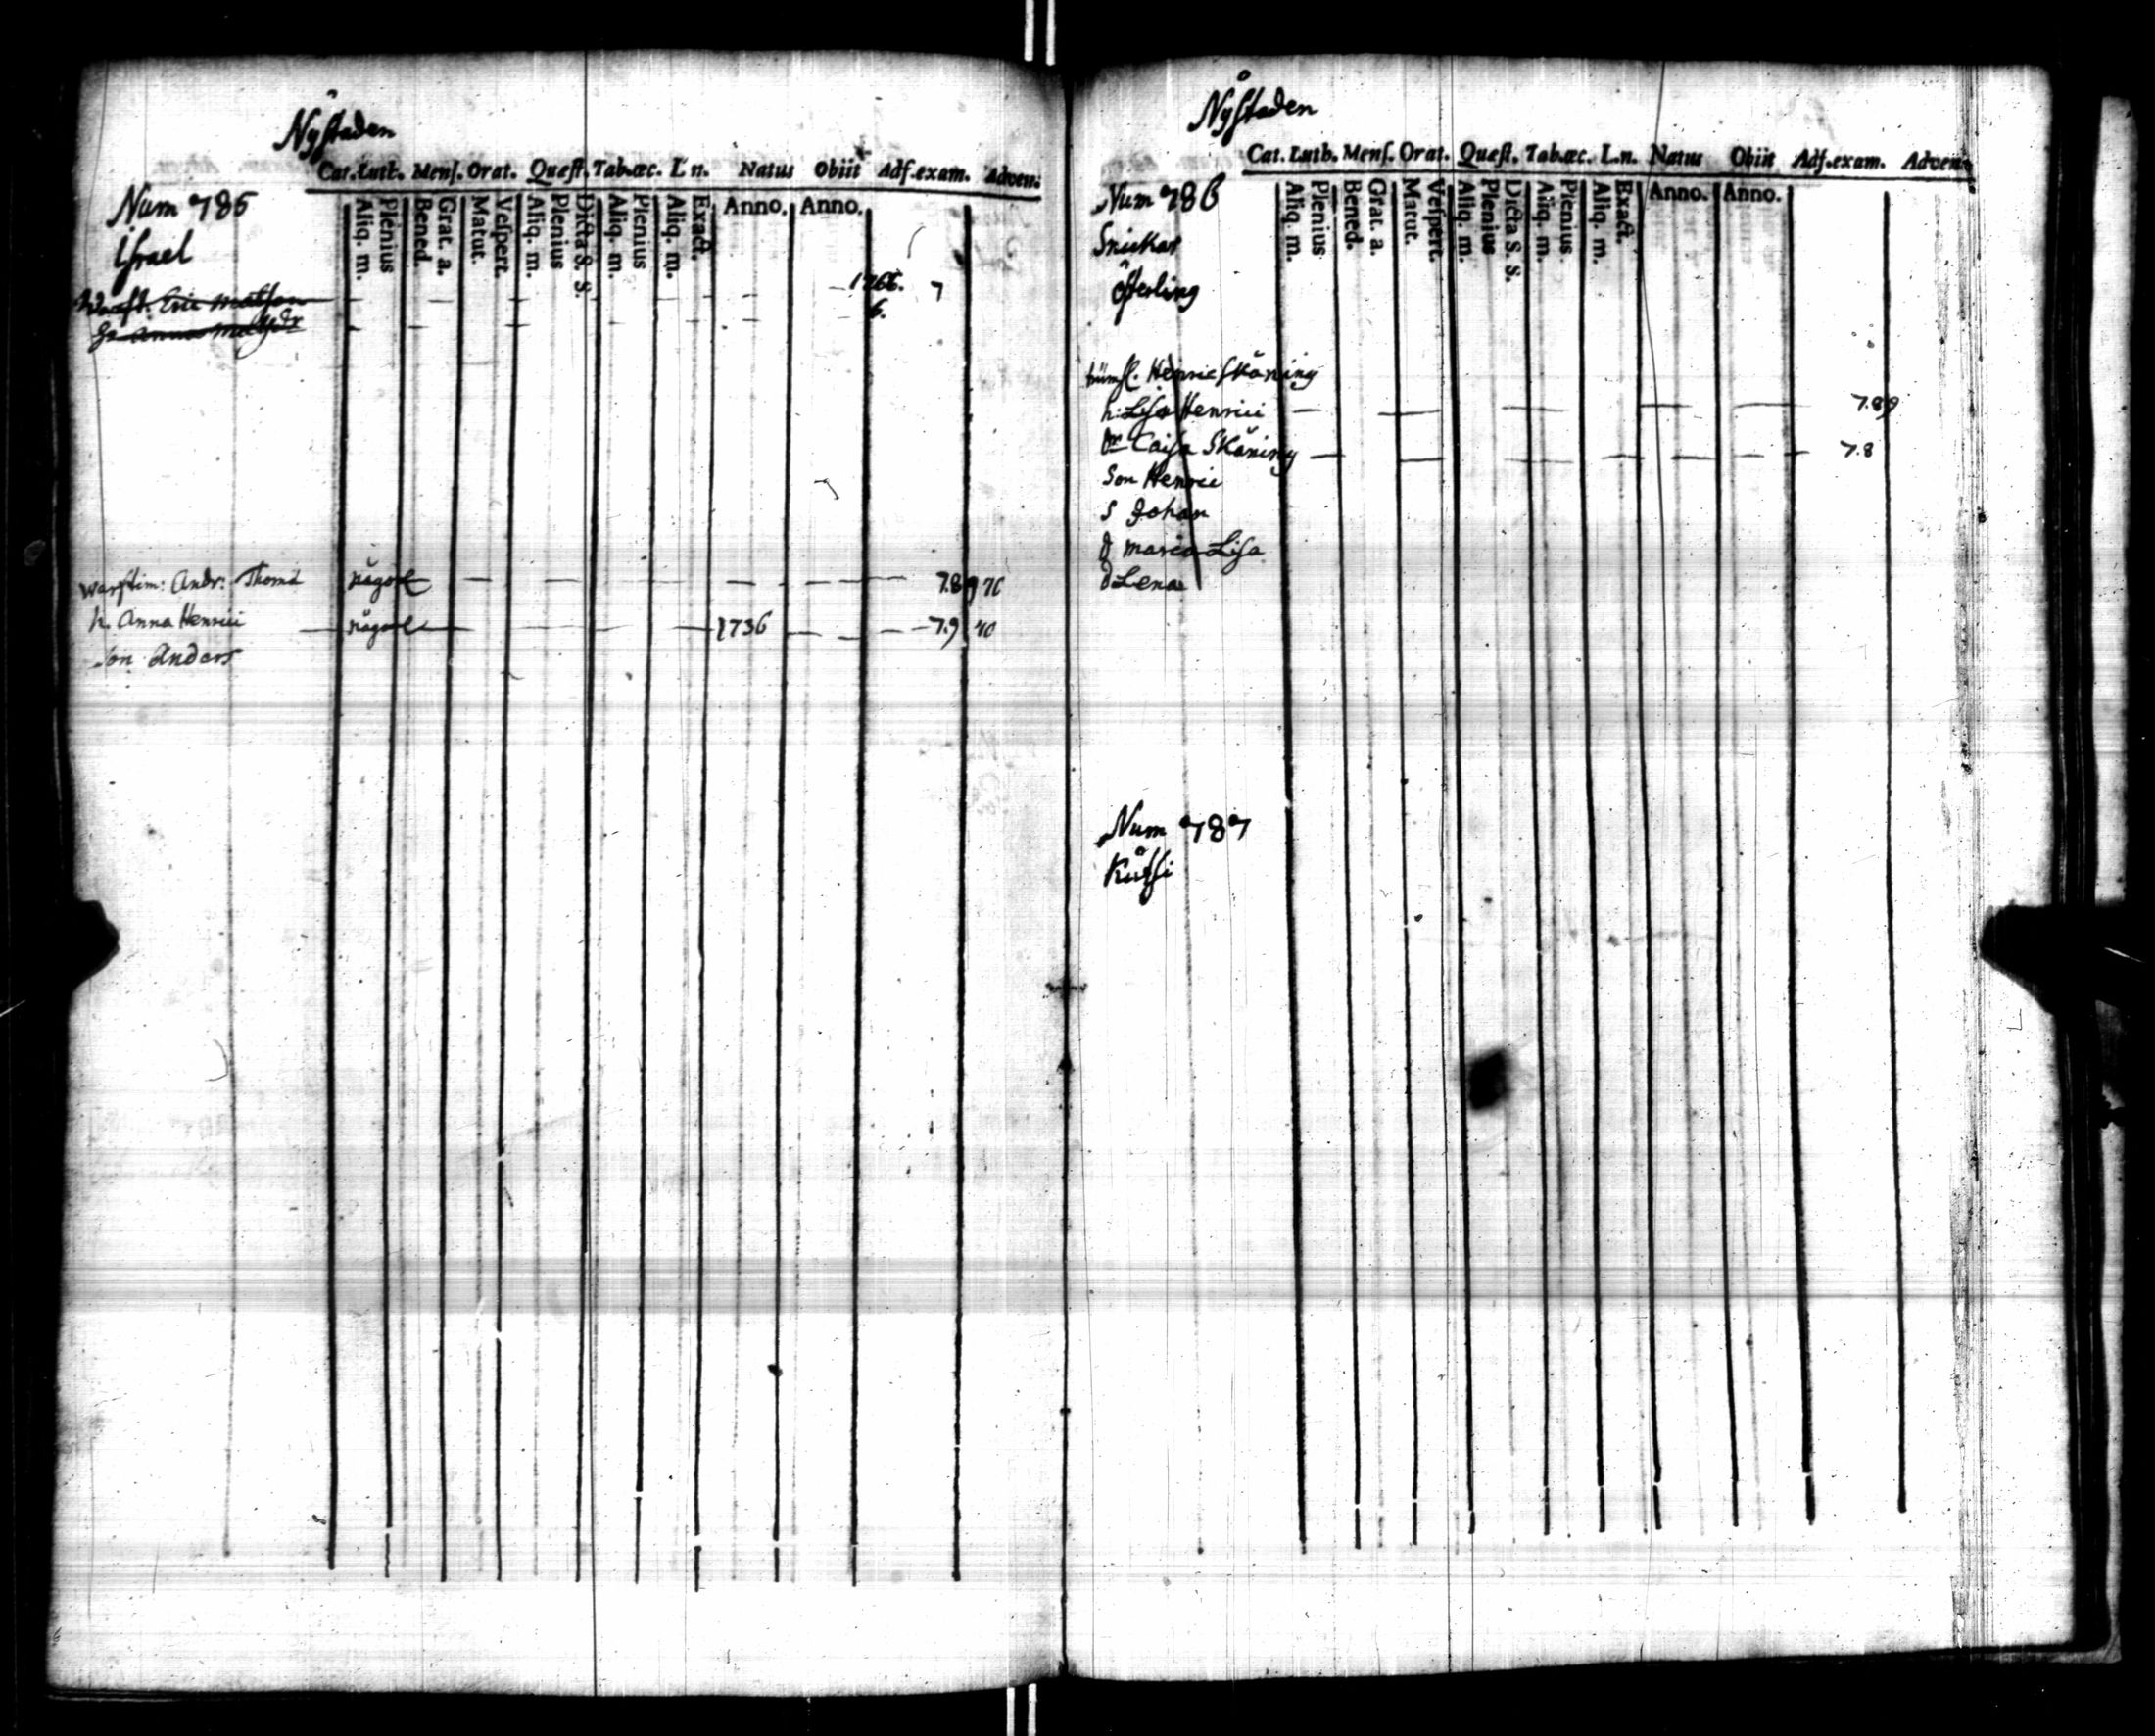 Nystaden
Cat. Luth. Mens. Orat. Quæst. Tab.œc. L n. Natus Obiit Adf. exam. Adven.
Aliq. m. Plenius Bened. Grat. a. Matut. Vespert. Aliq. m. Plenius Dicta S. S. Aliq. m. Plenius Aliq. m. Exact. Anno. Anno.
Num 785
Israel
Eric Matsson — — — — — — — 1766. 7
Anna — — — — — — 6.
Warfstim: Andr: Thomæ något — — — — — — — 7.8 9 70
h. Anna Henrici något — — — — — 1736 — — — 7.9 70
Son Anders
Nystaden
Cat. Luth. Mens. Orat. Quæst. Tab.œc. L.n. Natus Obiit Adf. exam. Adven.
Aliq. m. Plenius Bened. Grat. a. Matut. Vespert. Aliq. m. Plenius Dicta S. S. Aliq. m. Plenius Aliq. m. Exact. Anno. Anno.
Num 786
Snickar
Österling
Henric Skåning
h: Lisa Henrici — — — — — 7.89
Caisa Skåning — — — — — — — 7.8
Son Henric
S Johan
d Maria Lisa
d Lena
Num 787